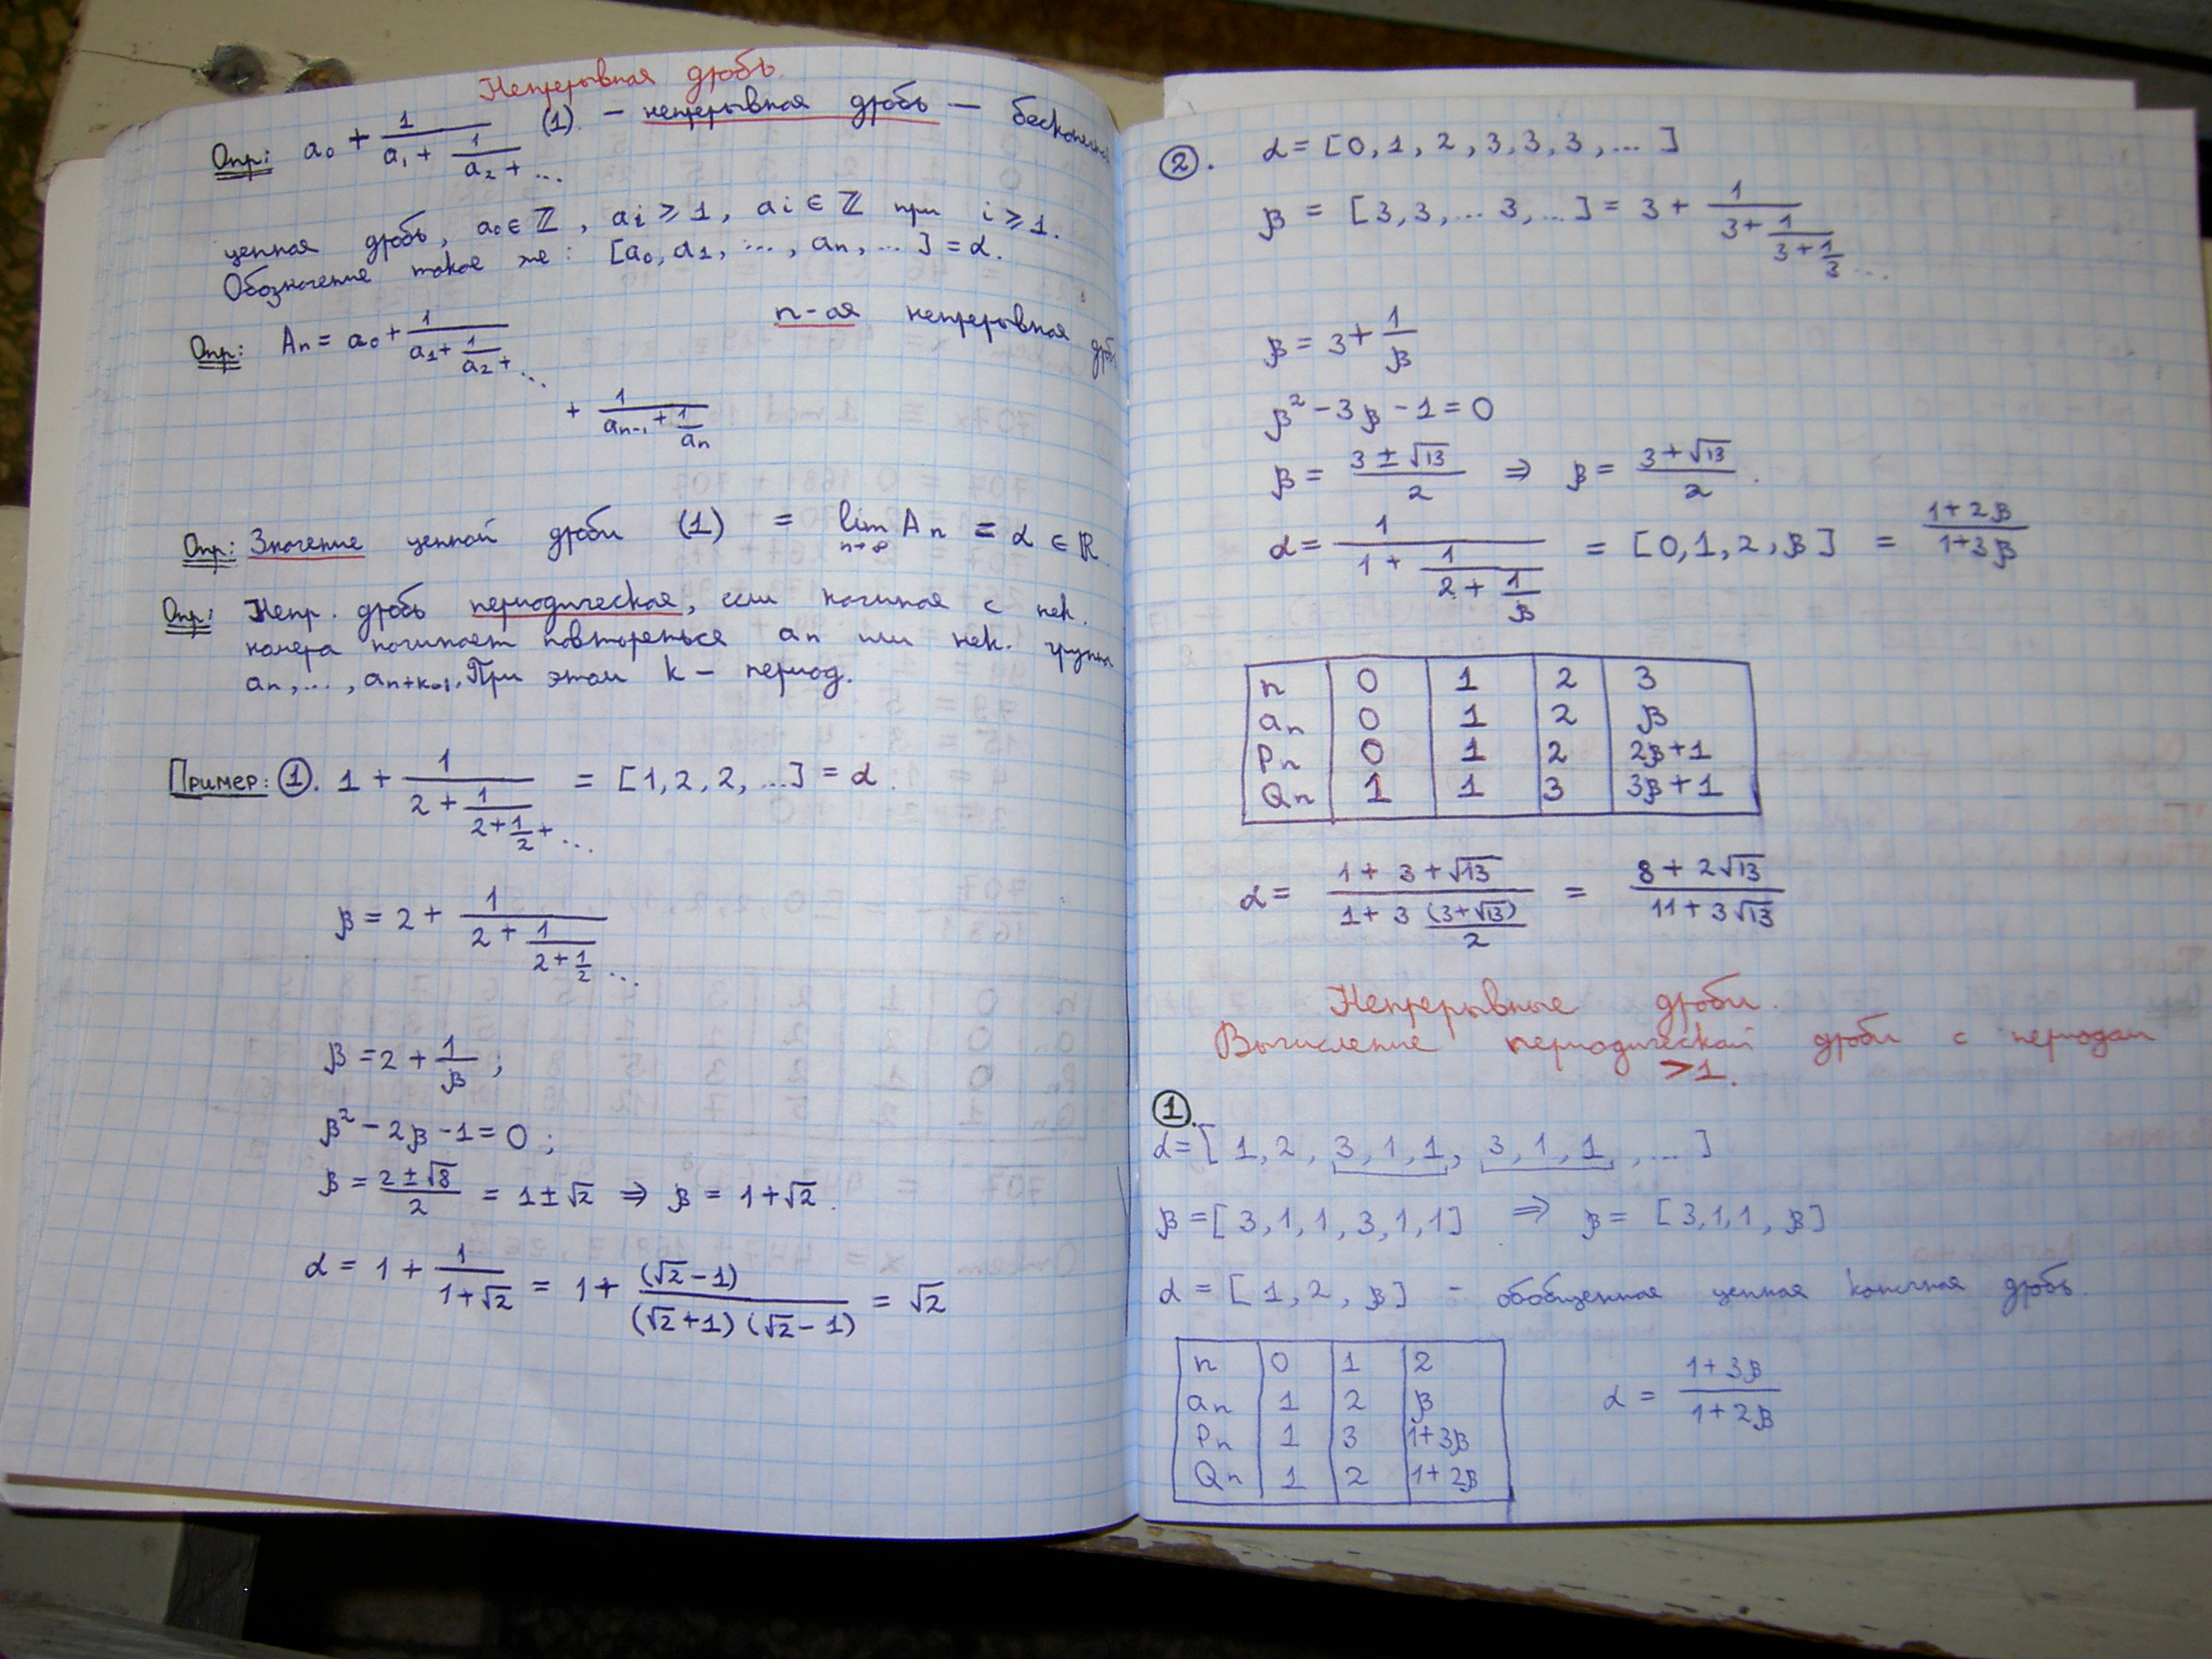 Непрерывная дробь.
Опр: a₀ + 1/(a₁ + 1/(a₂ + ... (1). – непрерывная дробь – бесконечная
цепная дробь, a₀ ∈ ℤ, aᵢ ⩾ 1, aᵢ ∈ ℤ при i ⩾ 1.
Обозначение такое же: [a₀, a₁, ..., aₙ, ...] = α.
Опр: Aₙ = a₀ + 1/(a₁ + 1/(a₂ + ... n-ая непрерывная дробь
+ 1/(aₙ₋₁ + 1/aₙ)
Опр: Значение цепной дроби (1) = lim Aₙ = α ∈ ℝ
n→∞
Опр: Непр. дробь периодическая, если начиная с нек.
номера начинает повторяться aₙ или нек. группа
aₙ, ..., aₙ₊ₖ₋₁. При этом k – период.
Пример: ①. 1 + 1/(2 + 1/(2 + 1/2 + ... = [1, 2, 2, ...] = α.
β = 2 + 1/(2 + 1/(2 + 1/2 ...
β = 2 + 1/β ;
β² – 2β – 1 = 0 ;
β = (2 ± √8)/2 = 1 ± √2 ⇒ β = 1 + √2.
α = 1 + 1/(1 + √2) = 1 + (√2 – 1)/((√2 + 1)(√2 – 1)) = √2
②. α = [0, 1, 2, 3, 3, 3, ... ]
β = [3, 3, ... 3, ...] = 3 + 1/(3 + 1/(3 + 1/3 ...
β = 3 + 1/β
β² – 3β – 1 = 0
β = (3 ± √13)/2 ⇒ β = (3 + √13)/2.
α = 1/(1 + 1/(2 + 1/β)) = [0, 1, 2, β] = (1 + 2β)/(1 + 3β)
n 0 1 2 3
aₙ 0 1 2 β
Pₙ 0 1 2 2β + 1
Qₙ 1 1 3 3β + 1
α = (1 + 3 + √13)/(1 + 3 (3 + √13)/2) = (8 + 2√13)/(11 + 3√13)
Непрерывные дроби.
Вычисление периодической дроби с периодом
>1.
①.
α = [ 1, 2, 3, 1, 1, 3, 1, 1, , ... ]
β = [3, 1, 1, 3, 1, 1] ⇒ β = [3, 1, 1, β]
α = [1, 2, β] – обобщенная цепная конечная дробь.
n 0 1 2
aₙ 1 2 β
Pₙ 1 3 1 + 3β
Qₙ 1 2 1 + 2β
α = (1 + 3β)/(1 + 2β)